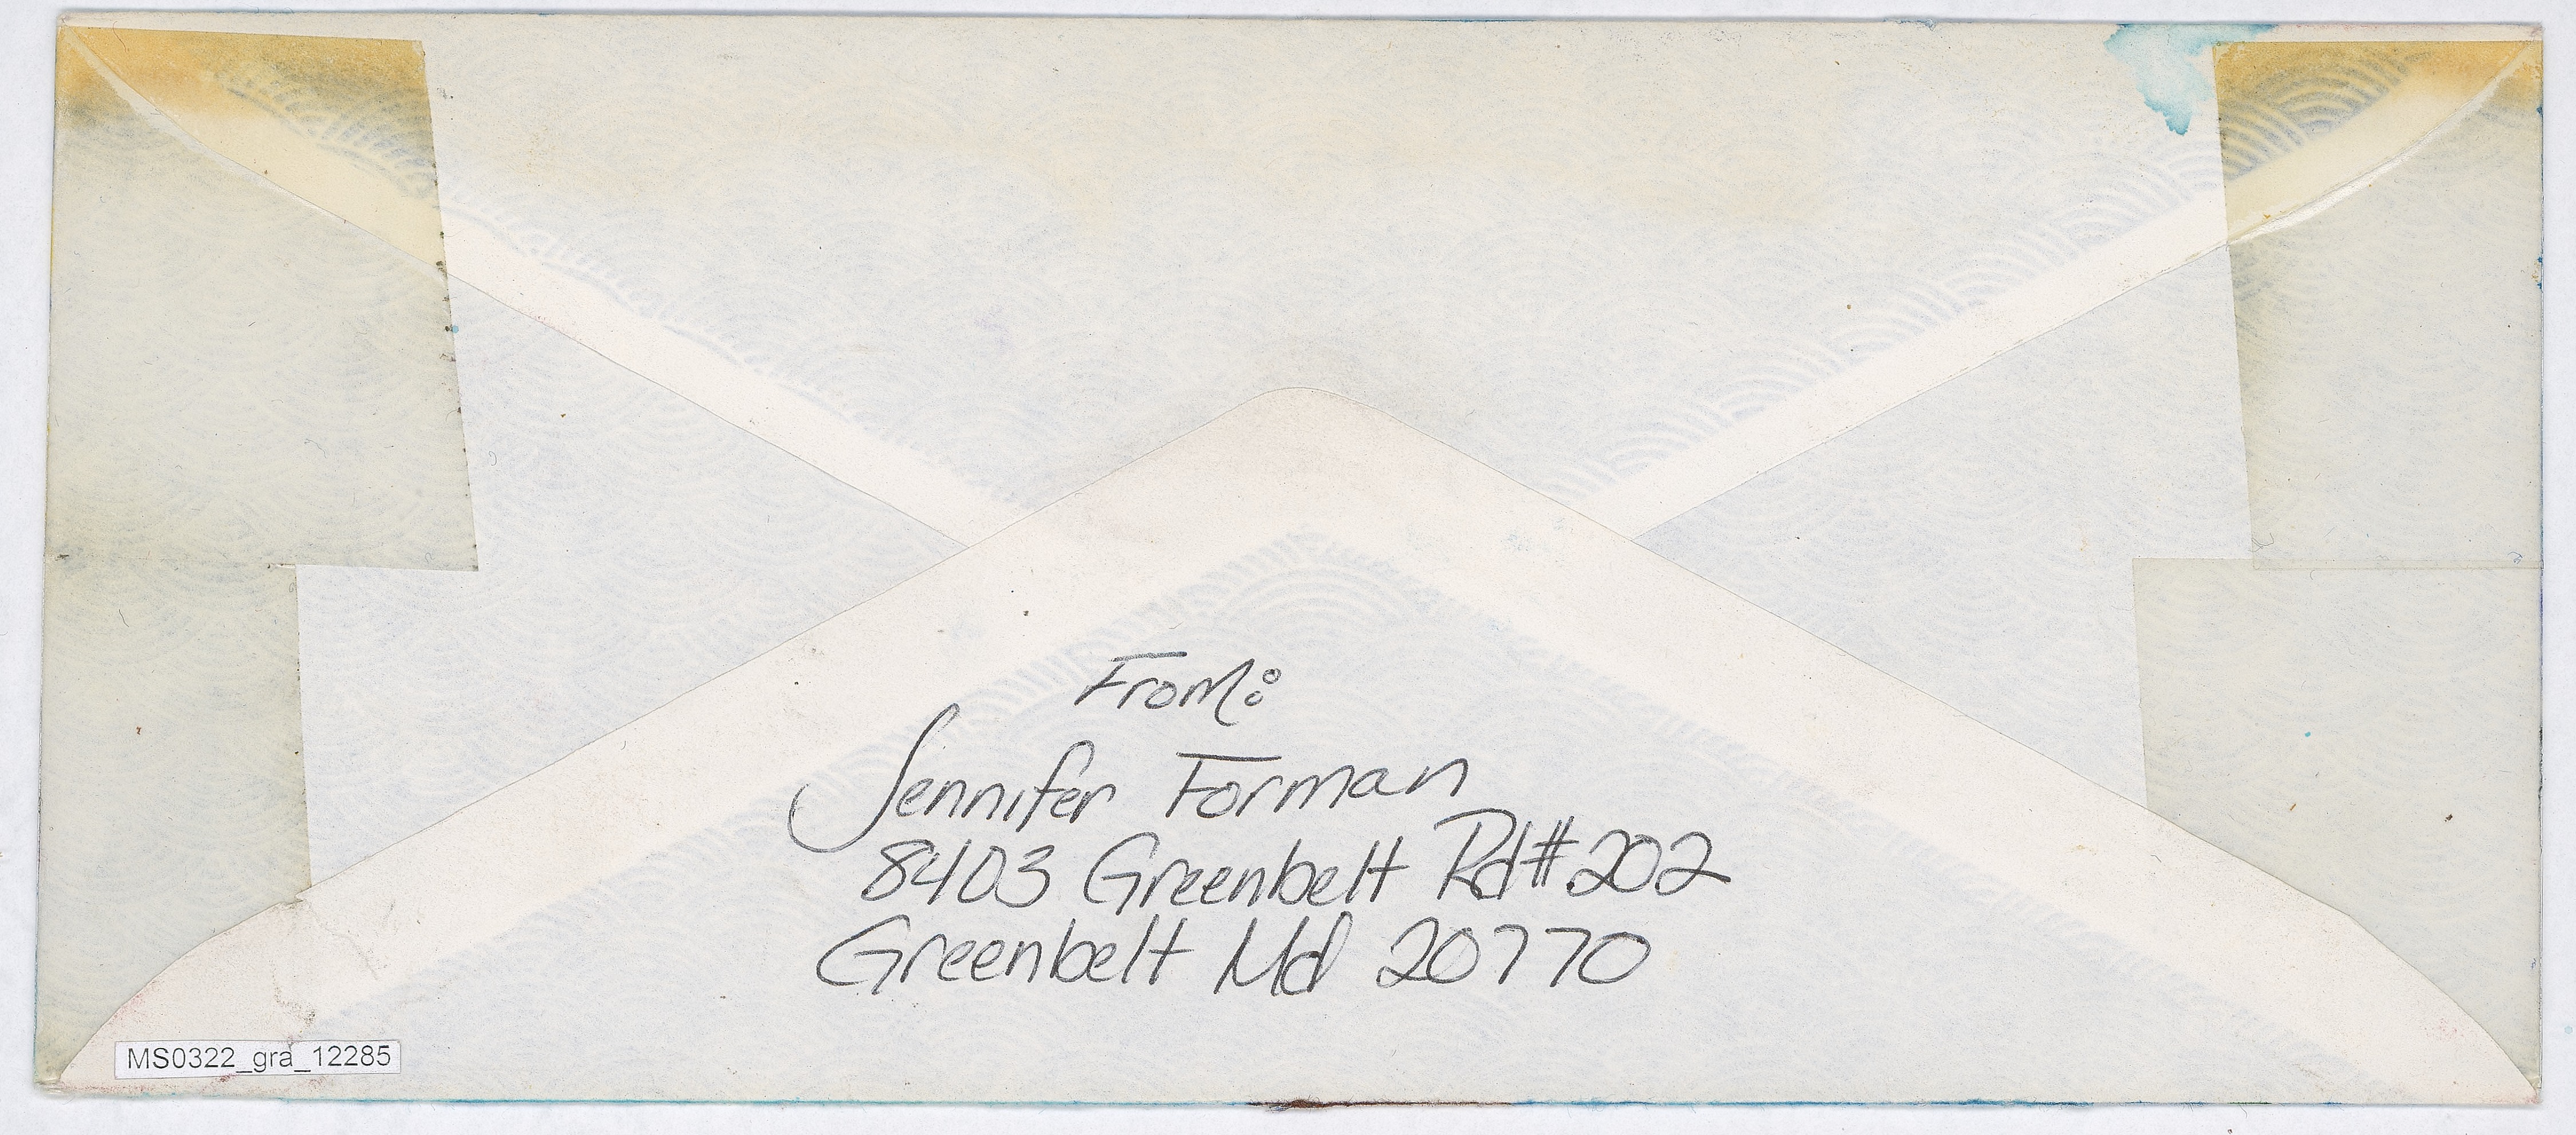 From:
Jennifer Forman
8403 Greenbelt Rd #202
Greenbelt Md 20770
MS0322_gra_12285